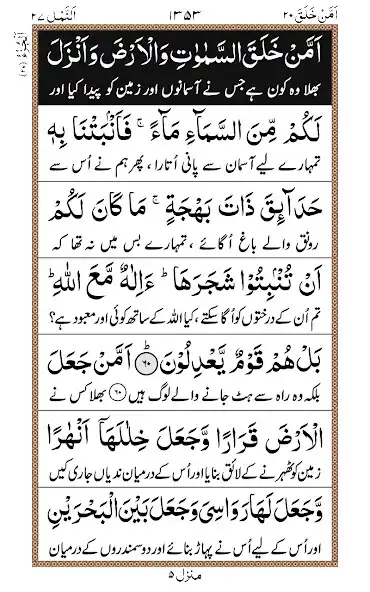 اَمَّنْ خَلَقَ ٢٠ ١٣٥٣ اَلنَّمْل ٢٧
اَلْجُزْءُ (٢٠)
اَمَّنْ خَلَقَ السَّمٰوٰتِ وَالْاَرْضَ وَاَنْزَلَ
بھلا وہ کون ہے جس نے آسمانوں اور زمین کو پیدا کیا اور
لَكُمْ مِّنَ السَّمَآءِ مَآءً ۚ فَاَنْۢبَتْنَا بِهٖ
تمہارے لیے آسمان سے پانی اُتارا ، پھر ہم نے اُس سے
حَدَآئِقَ ذَاتَ بَهْجَةٍ ۚ مَا كَانَ لَكُمْ
رونق والے باغ اُگائے ، تمہارے بس میں نہ تھا کہ
اَنْ تُنْۢبِتُوْا شَجَرَهَا ؕ ءَاِلٰهٌ مَّعَ اللّٰهِ ؕ
تم اُن کے درختوں کو اُگا سکتے ، کیا اللہ کے ساتھ کوئی اور معبود ہے؟
بَلْ هُمْ قَوْمٌ يَّعْدِلُوْنَ ؕ ﴿٦٠﴾ اَمَّنْ جَعَلَ
بلکہ وہ راہ سے ہٹ جانے والے لوگ ہیں ﴿٦٠﴾ بھلا کس نے
الْاَرْضَ قَرَارًا وَّجَعَلَ خِلٰلَهَاۤ اَنْهٰرًا
زمین کو ٹھہرنے کے لائق بنایا اور اُس کے درمیان ندیاں جاری کیں
وَّجَعَلَ لَهَا رَوَاسِىَ وَجَعَلَ بَيْنَ الْبَحْرَيْنِ
اور اُس کے لیے اُس نے پہاڑ بنائے اور دو سمندروں کے درمیان
منزل ٥